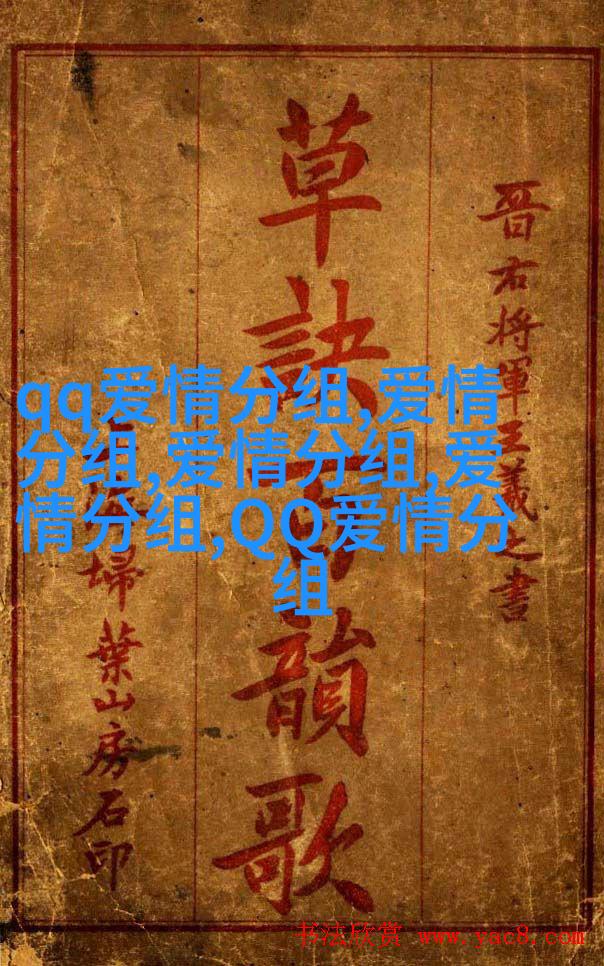 晋右将軍王羲之書
草訣百韻歌
掃葉山房石印
qq爱情分组,爱情
分组,爱情分组,爱
情分组,QQ爱情分
组
书法欣赏 www.yac8.com